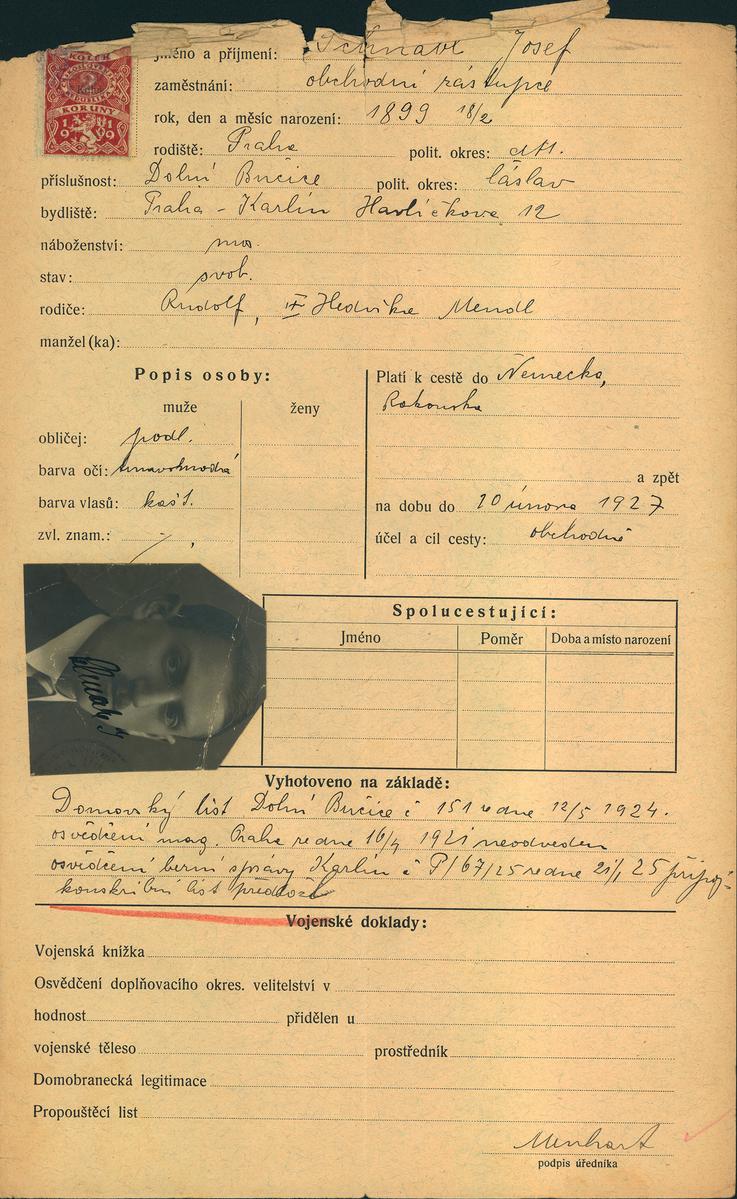 KOLEK
KORUNY
1919
Jméno a příjmení: Josef
zaměstnání: obchodní zástupce
rok, den a měsíc narození: 1899 18/2
rodiště: Praha polit. okres: dtt.
příslušnost: Dolní Bučice polit. okres: Čáslav
bydliště: Praha - Karlín Havlíčkova 12
náboženství: mos.
stav: svob.
rodiče: Rudolf, Hedvika Mendl
manžel (ka):
Popis osoby:
muže ženy
obličej: podl.
barva očí: tmavohnědá
barva vlasů: kašt.
zvl. znam.: -,
Platí k cestě do Německa,
Rakouska
a zpět
na dobu do 20 února 1927
účel a cíl cesty: obchodně
Spolucestující:
Jméno Poměr Doba a místo narození
Vyhotoveno na základě:
Domovský list Dolní Bučice č 151 ze dne 12/5 1924.
osvědčení mag. Praha ze dne 16/4 1921 neodveden
osvědčení berní správy Karlín č P/67/25 ze dne 21/1 25 připoj.
konskribní list předlož
Vojenské doklady:
Vojenská knížka
Osvědčení doplňovacího okres. velitelství v
hodnost přidělen u
vojenské těleso prostředník
Domobranecká legitimace
Propouštěcí list
Menhart
podpis úředníka